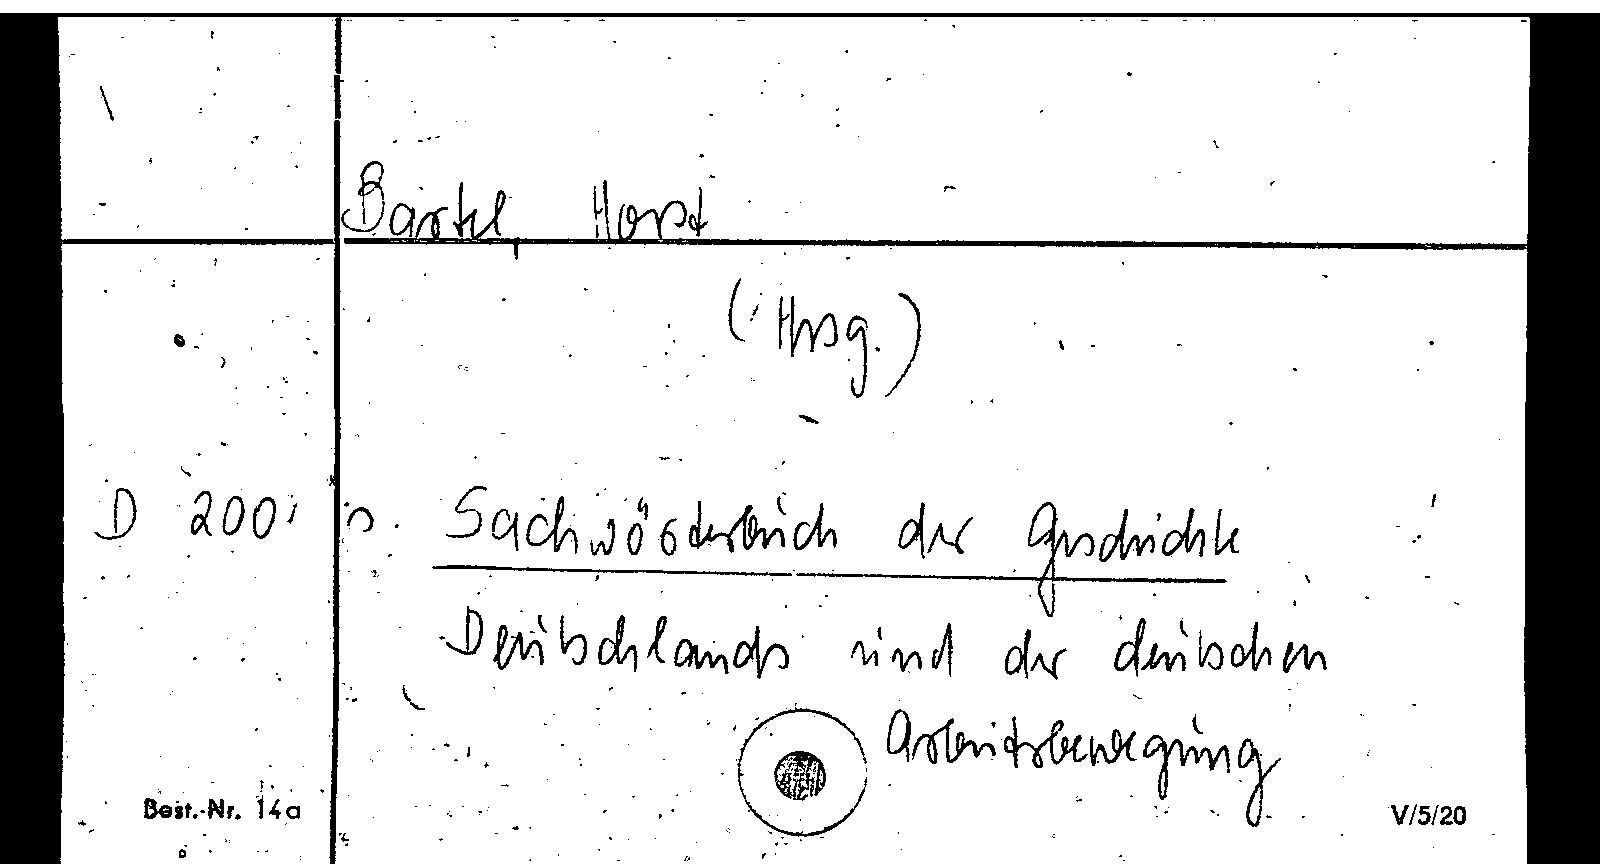 Bartel, Horst
(Hrsg.)
D 200, s. Sachwörterbuch der Geschichte
Deutschlands und der deutschen
Arbeiterbewegung
Best.-Nr. 14a V/5/20